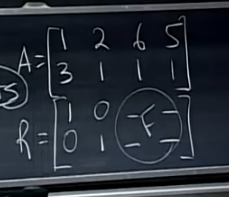 A = [1 2 6 5
3 1 1 1]
5
R = [1 0 -F-
0 1 - -]